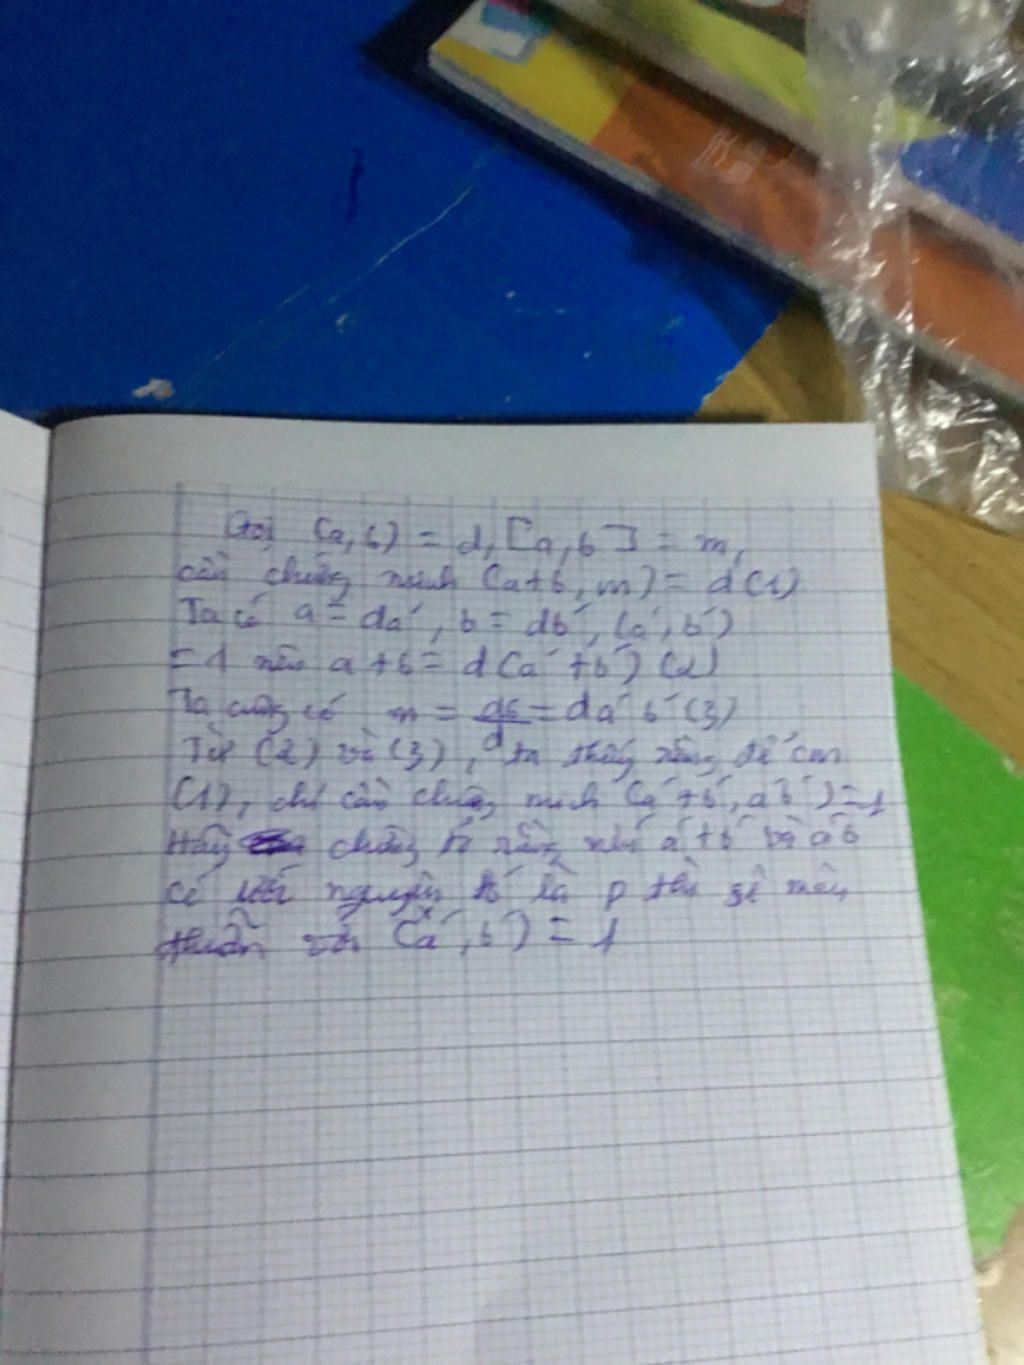 Gọi (a, b) = d, [a, b] = m,
cần chứng minh (a+b, m) = d (1)
Ta có a = da', b = db', (a', b')
= 1 nên a + b = d(a' + b') (2)
Ta cũng có m = ab/d = da'b' (3)
Từ (2) và (3), ta thấy rằng để cm
(1), chỉ cần chứng minh (a'+b', a'b') = 1
Hãy chứng tỏ rằng nếu a'+b' và a'b'
có ước nguyên tố là p thì sẽ mâu
thuẫn với (a', b') = 1